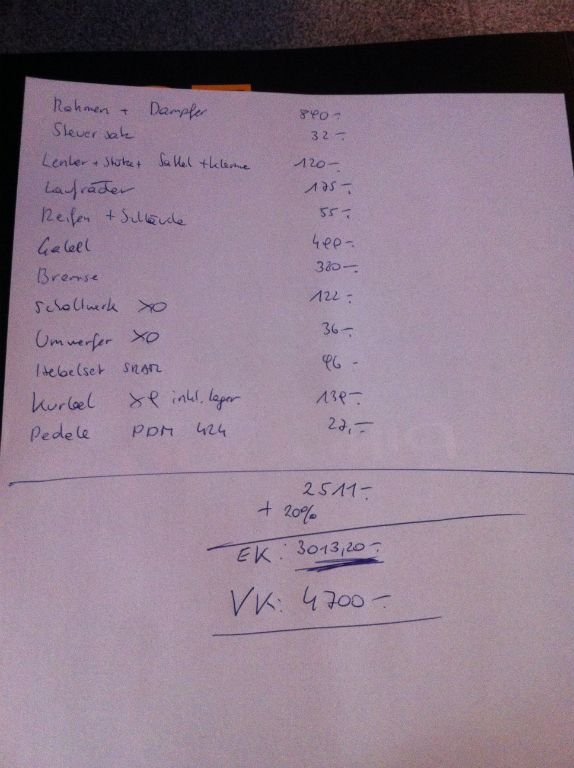 Rahmen + Dämpfer 890.-
Steuersatz 32.-
Lenker + Stütze + Sattel + Klemme 120.-
Laufräder 175.-
Reifen + Schläuche 55.-
Gabel 499.-
Bremse 320.-
Schaltwerk XO 122.-
Umwerfer XO 36.-
Hebelset SRAM 96.-
Kurbel X9 inkl. Lager 139.-
Pedale PDM 424 27,-
2511.-
+ 20%
EK: 3013,20.-
VK: 4700.-